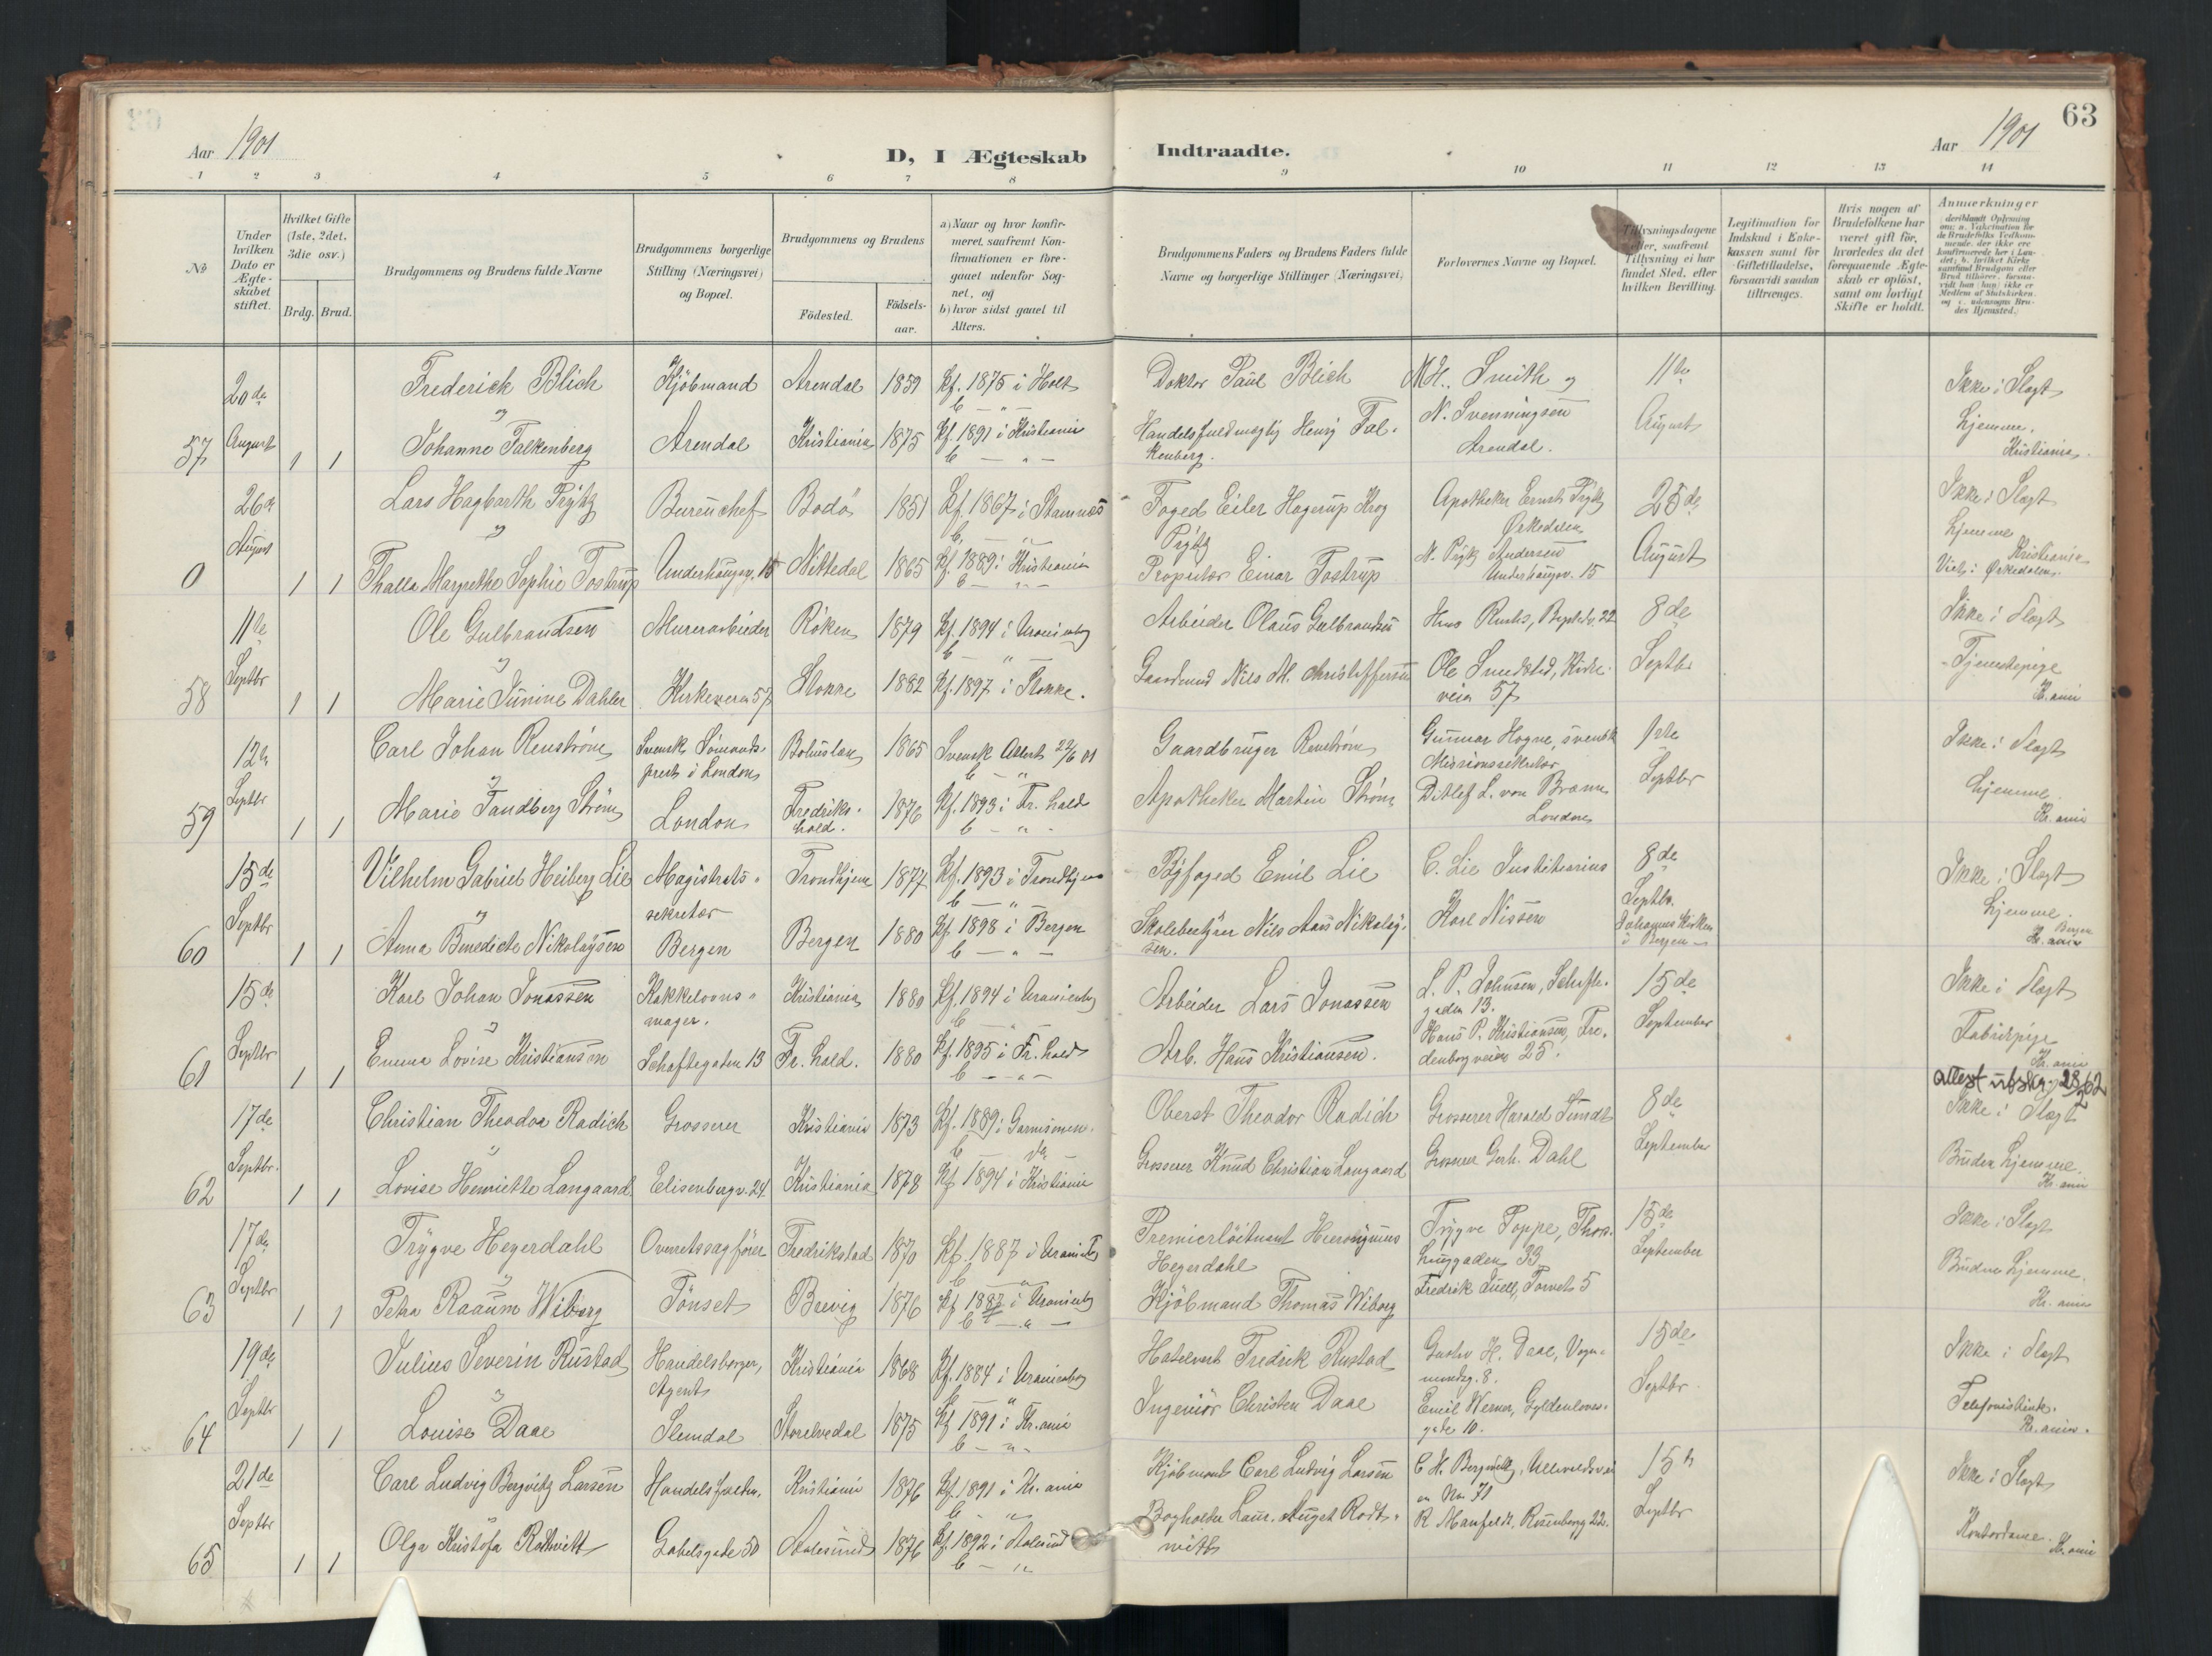 63
Aar 1901
D, I Ægteskab Indtraadte.
Aar 1901
1 2 3 4 5 6 7 8 9 10 11 12 13 14
No
Under hvilken Dato er Ægteskabet stiftet.
Hvilket Gifte (1ste, 2det, 3die osv.)
Brdg. Brud.
Brudgommens og Brudens fulde Navne
Brudgommens borgerlige Stilling (Næringsvei) og Bopæl.
Brudgommens og Brudens
Födested.
Födsels-aar.
a) Naar og hvor konfirmeret, saafremt Konfirmationen er foregaaet udenfor Sognet, og
b) hvor sidst gaaet til Alters.
Brudgommens Faders og Brudens Faders fulde Navne og borgerlige Stillinger (Næringsvei)
Forlovernes Navne og Bopæl.
Tillysningsdagene eller, saafremt Tillysning ei har fundet Sted, efter hvilken Bevilling.
Legitimation for Indskud i Enkekassen samt for Giftetilladelse, forsaavidt saadan tiltrænges.
Hvis nogen af Brudefolkene har været gift för, hvorledes da det foregaaende Ægteskab er oplöst, samt om lovligt Skifte er holdt.
Anmærkninger (deriblandt Oplysning om: a. Vakcination for de Brudefolks Vedkommende, der ikke ere konfirmerede her i Landet; b. hvilket Kirkesamfund Brudgom eller Brud tilhörer, forsaavidt han (hun) ikke er Medlem af Statskirken, og c. udensogns Brudes Hjemsted.)
57 20de August 1 1
Frederick Blich Kjöbmand Arendal 1859 Kf. 1875 i Holt
Doktor Paul Blich M.H. Smith og 11te August Ikke i Slægt
Johanne Falkenberg Arendal Kristiania 1875 Kf. 1891 i Kristiania
Handelsfuldmægtig Henrij Falkenberg. N. Svenningsen Arendal. Hjemme. Kristiania.
0 26de August 1 1
Lars Hagbarth Prÿtz Bureuchef Bodö 1851 Kf. 1867 i Stamnæs
Foged Eiler Hagerup Krog Prÿtz Apotheker Ernst Prÿtz Orkedalen 25de August Ikke i Slægt
Thalla Margrethe Sophie Tostrup Underhaugsv. 15 Nittedal 1865 Kf. 1889 i Kristiania
Propritær Einar Tostrup N. Prÿtz Andersen Underhaugsv. 15 Hjemme Kristiania
Viet i Orkedalen.
58 11te Septbr 1 1
Ole Gulbrandsen Murerarbeider Röken 1879 Kf. 1894 i Uranienbg
Arbeider Olaus Gulbrandsen 8de Septbr Ikke i Slægt
Marie Junine Dahler Kirkeveien 57 Stokke 1882 Kf. 1897 i Stokke.
Gaardmand Nils M. Christoffersen Ole Smedstad, Kirkeveien 57 Tjenestepige Kr.ania
59 12te Septbr 1 1
Carl Johan Renström Svensk Sömandsprest i London Bohuslæn 1865 Svensk Attest 22/6 01
Gaardbruger Renström Gunnar Hogne, svensk Missionssekretær 1ste Septbr Ikke i Slægt
Marie Tandberg Ström London Fredrikshald. 1876 Kf. 1893 i Fr. hald
Apotheker Martin Ström Ditlef L. von Bræm London Hjemme. Kr.ania
60 15de Septbr 1 1
Vilhelm Gabriel Heiberg Lie Magistratssekretær Trondhjem 1877 Kf. 1893 i Trondhjem
Byfoged Emil Lie C. Lie Justitiarius 8de Septbr. Ikke i Slægt
Anna Benedicte Nikolaÿsen Bergen Bergen 1880 Kf. 1898 i Bergen
Skolebestÿrer Nils Aars Nikolaÿsen. Karl Nissen Johannes Kirken i Bergen Hjemme Bergen
61 15de Septbr 1 1
Karl Johan Jonassen Kakkelovnsmager. Kristiania 1880 Kf. 1894 i Uranienbg
Arbeider Lars Jonassen L. P. Johnsen, Schaftegaden 13. 15de September Ikke i Slægt
Emma Lovise Kristiansen Schaftegaden 13 Fr. hald. 1880 Kf. 1895 i Fr. hald
Arb. Hans Kristiansen. Hans P. Kristiansen, Fredenborgveien 25. Fabrikpige Kr.ania
attest utskr.
62 17de Septbr. 1 1
Christian Theodor Radich Grosserer Kristiania 1873 Kf. 1889 i Garnisonen.
Oberst Theodor Radich Grosserer Harald Sundt 8de September Ikke i Slægt
Lovise Henriette Langaard Elisenbergv. 24 Kristiania 1878 Kf 1894 i Kristiania
Grosserer Knud Christian Langaard Grosserer Gerh. Dahl Bruden hjemme. Kr.ania
63 17de Septbr 1 1
Trÿgve Heyerdahl Overretssagförer Fredrikstad 1870 Kf. 1887 i Uranienb
Premierlöitnant Hieronÿmus Heyerdahl Trÿgve Poppe, 15de September Ikke i Slægt
Petra Raaum Wiborg Tönset Brevig 1876 Kf i Uranienbg
Kjöbmand Thomas Wiborg Fredrik Juell, Torvet 5 Bruden hjemme. Kr.ania
64 19de Septbr 1 1
Julius Severin Rustad Handelsborger, Agent Kristiania 1868 Kf. 1884 i Uranienborg
Hotelvert Fredrik Rustad Gustav H. Daae, 15de Septbr. Ikke i Slægt
Louise Daae Slemdal Storelvedal 1875 Kf 1891 i Kr.ania
Ingeniör Christen Daae Emil Werner, Gyldenlovesgade 10. Telefonistinde. Kr.ania.
65 21de Septbr 1 1
Carl Ludvig Bergwitz Larsen Handelsfuldm. Kristiania 1876 Kf. 1891 i Kr.ania
Kjöbmand Carl Ludvig Larsen C H. Bergwitz, Ullevoldsveien No. 71 15de Septbr Ikke i Slægt
Olga Kristofa Rodtwitt Gabelsgade 50 Aalesund 1876 Kf. 1892 i Aalesund
Bogholder Laur. August Rodtwitt R Manfeldt, Rosenberg 22. Kontordame. Kr.ania